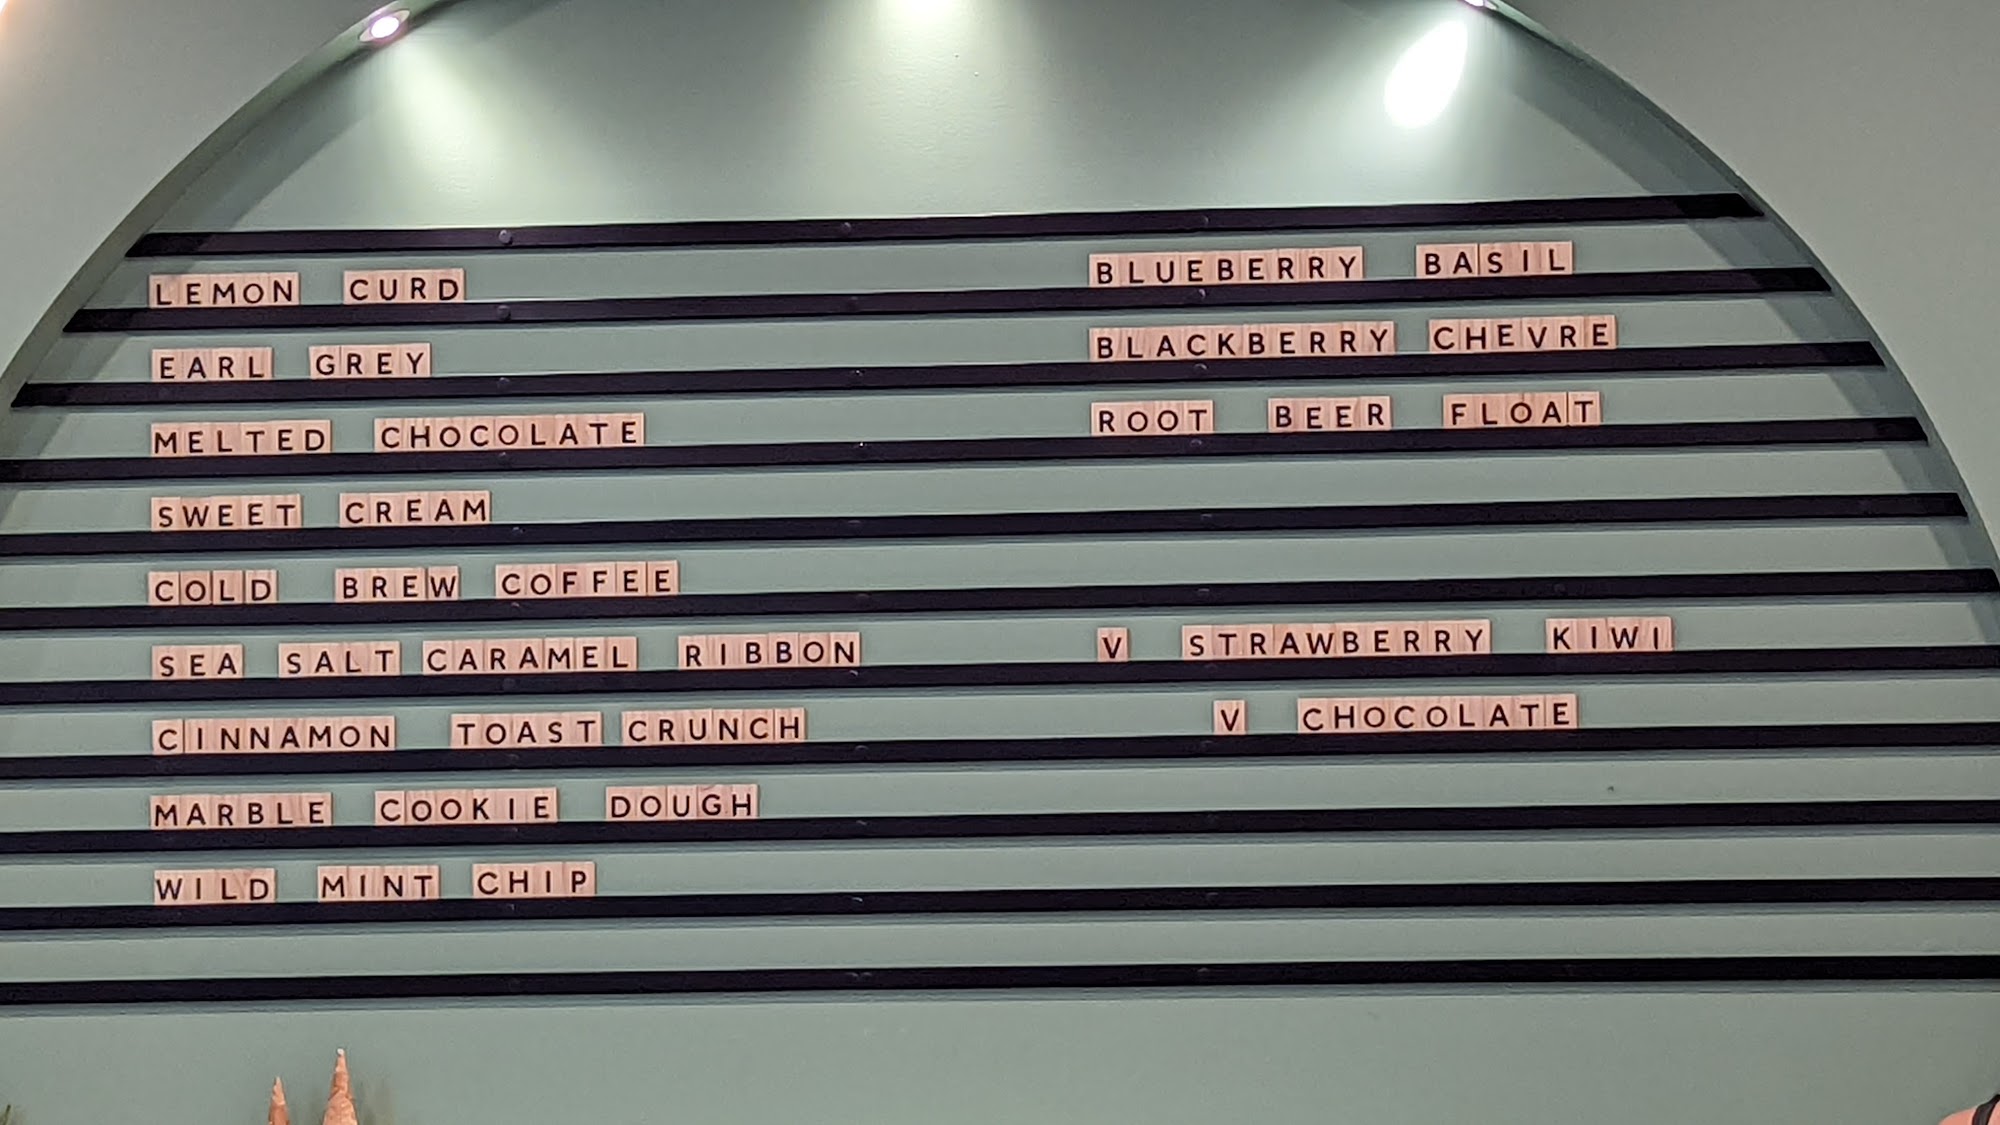 LEMON CURD
EARL GREY
MELTED CHOCOLATE
SWEET CREAM
COLD BREW COFFEE
SEA SALT CARAMEL RIBBON
CINNAMON TOAST CRUNCH
MARBLE COOKIE DOUGH
WILD MINT CHIP
BLUEBERRY BASIL
BLACKBERRY CHEVRE
ROOT BEER FLOAT
V STRAWBERRY KIWI
V CHOCOLATE